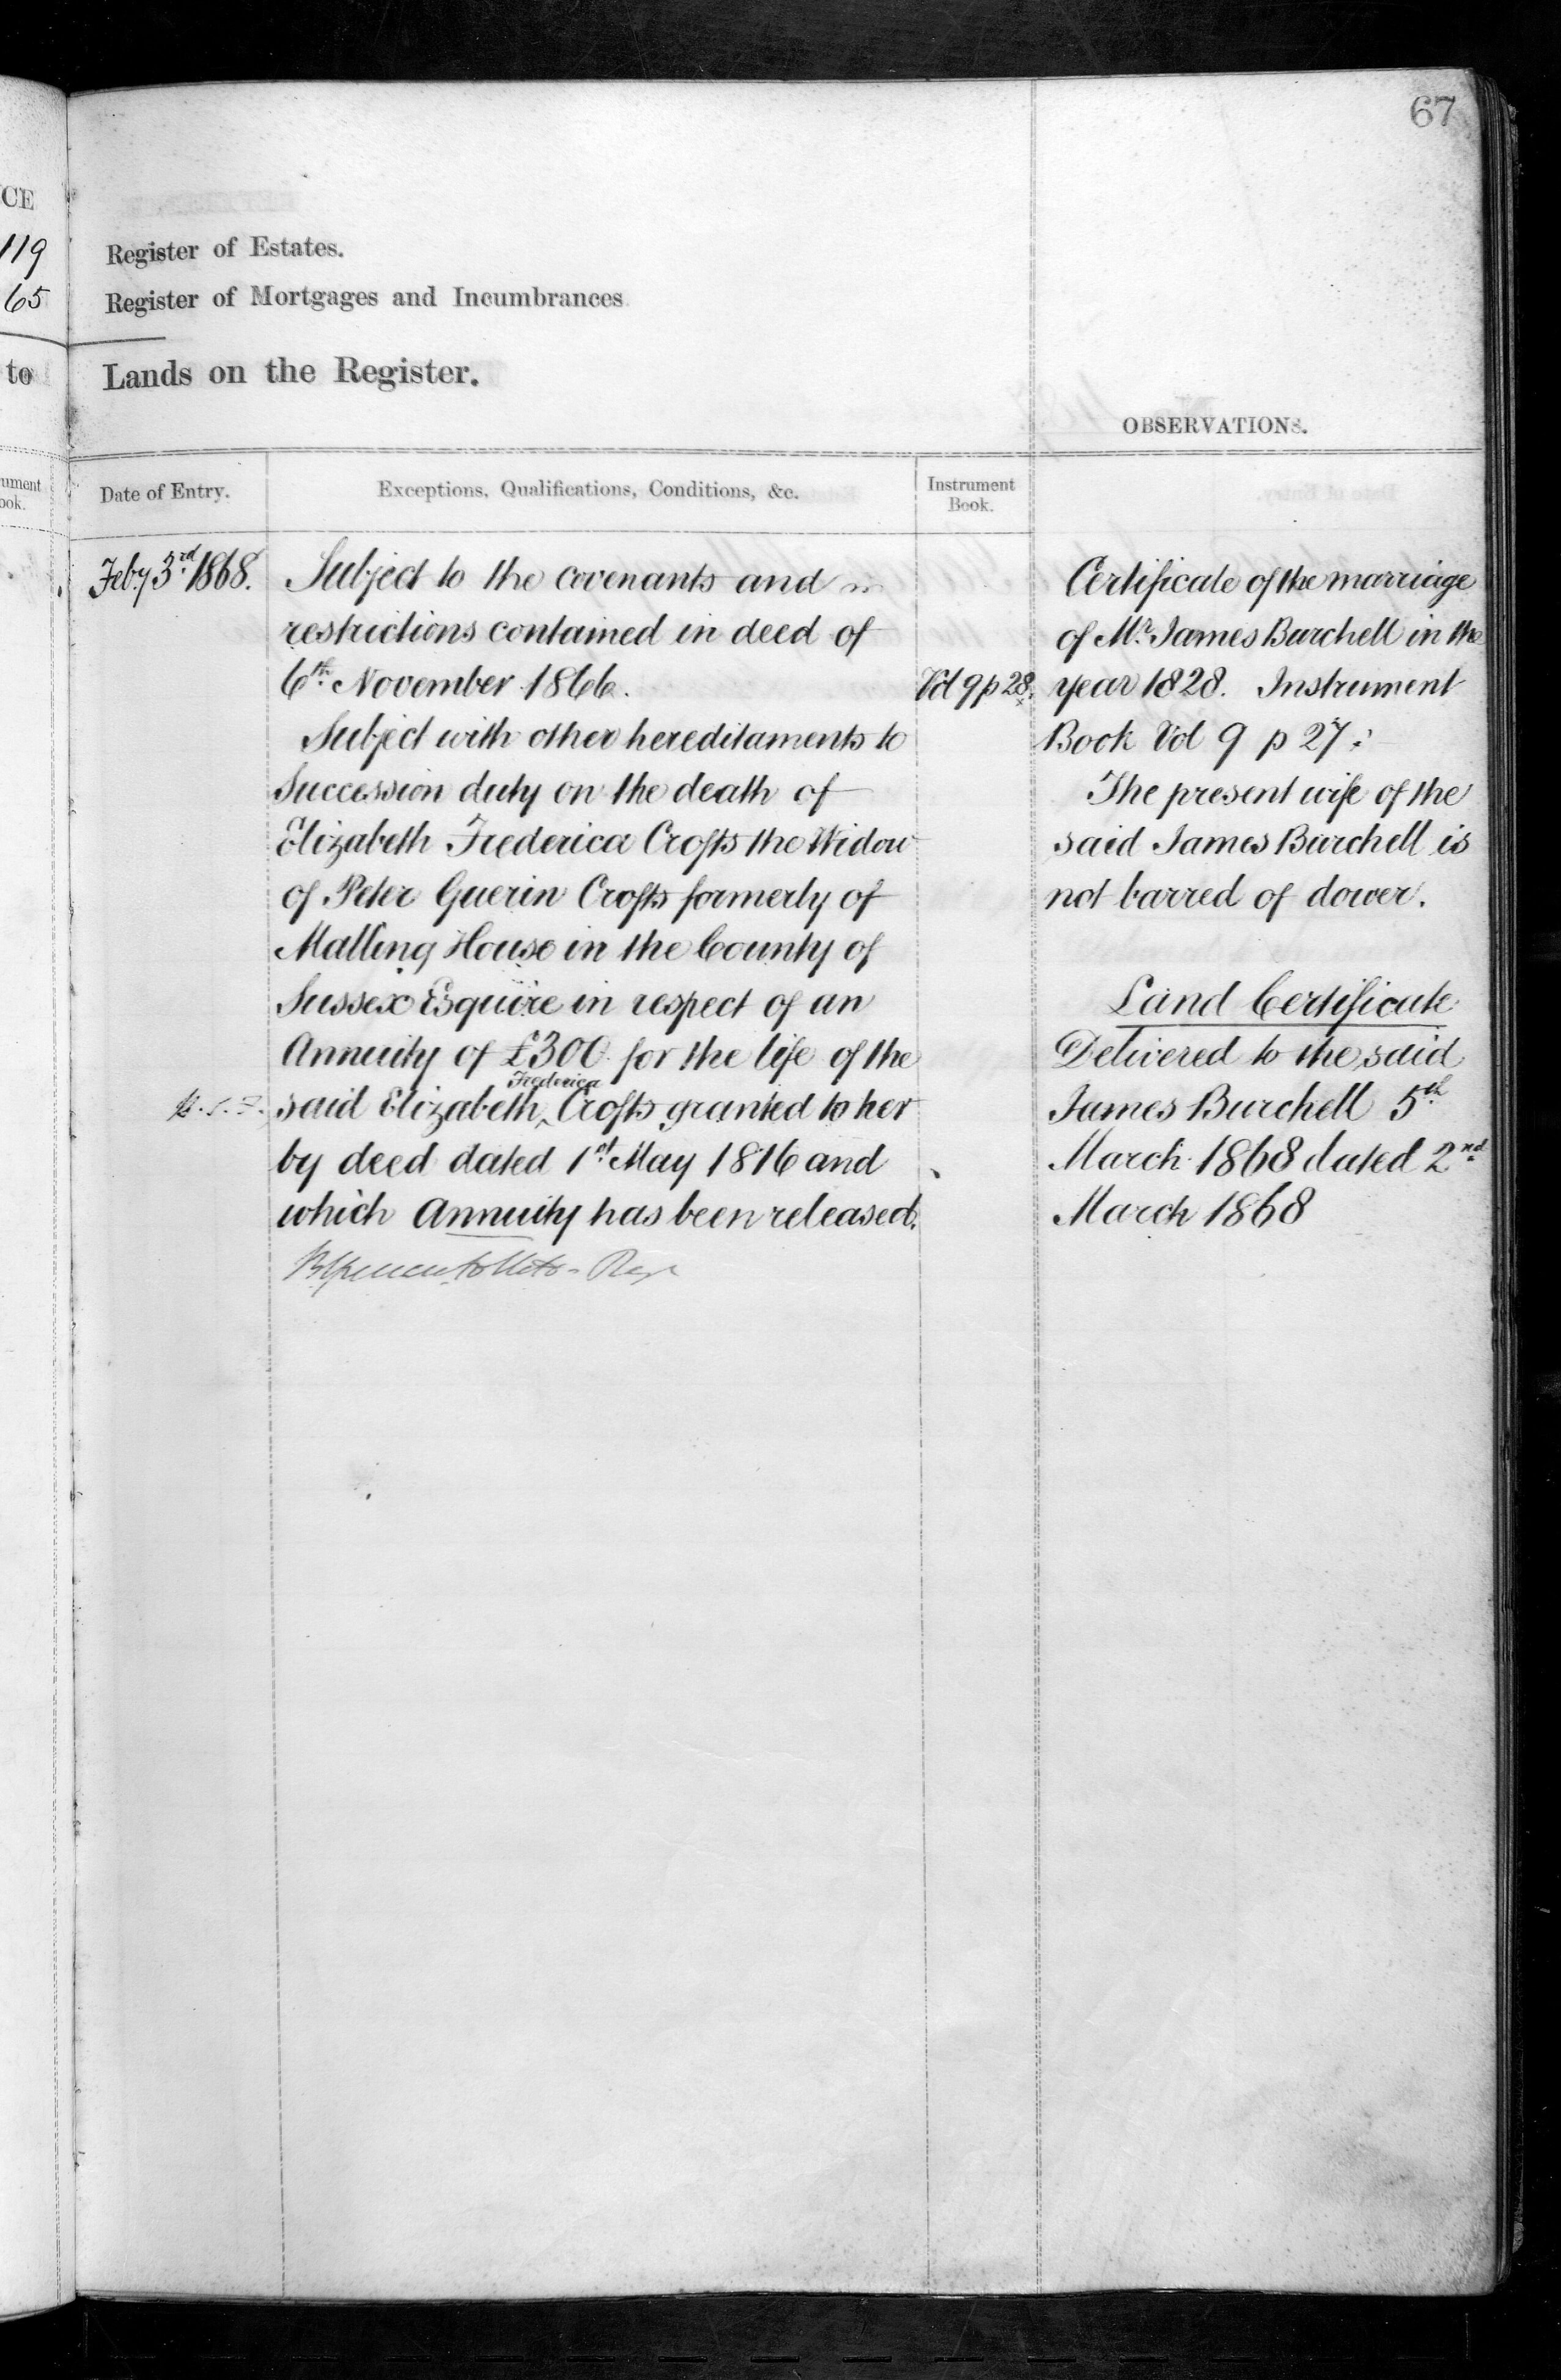 67
CE
119
65
to
Register of Estates.
Register of Mortgages and Incumbrances
Lands on the Register.
OBSERVATIONS.
ument
ook.
Date of Entry.
Exceptions, Qualifications, Conditions, &c.
Instrument
Book.
Feby 3rd 1868.
Subject to the covenants and
restrictions contained in deed of
6th November 1866.
Vol 9 p 28.
Subject with other hereditaments to
Succession duty on the death of
Elizabeth Frederica Crofts the Widow
of Peter Guerin Crofts formerly of
Malling House in the County of
Sussex Esquire in respect of an
Annuity of £300 for the life of the
Frederica
said Elizabeth ‸ Crofts granted to her
by deed dated 1st May 1816 and
which Annuity has been released.
Certificate of the marriage
of Mr. James Burchell in the
year 1828. Instrument
Book Vol 9 p 27.
The present wife of the
said James Burchell is
not barred of dower.
Land Certificate
Delivered to the said
James Burchell 5th
March 1868 dated 2nd
March 1868